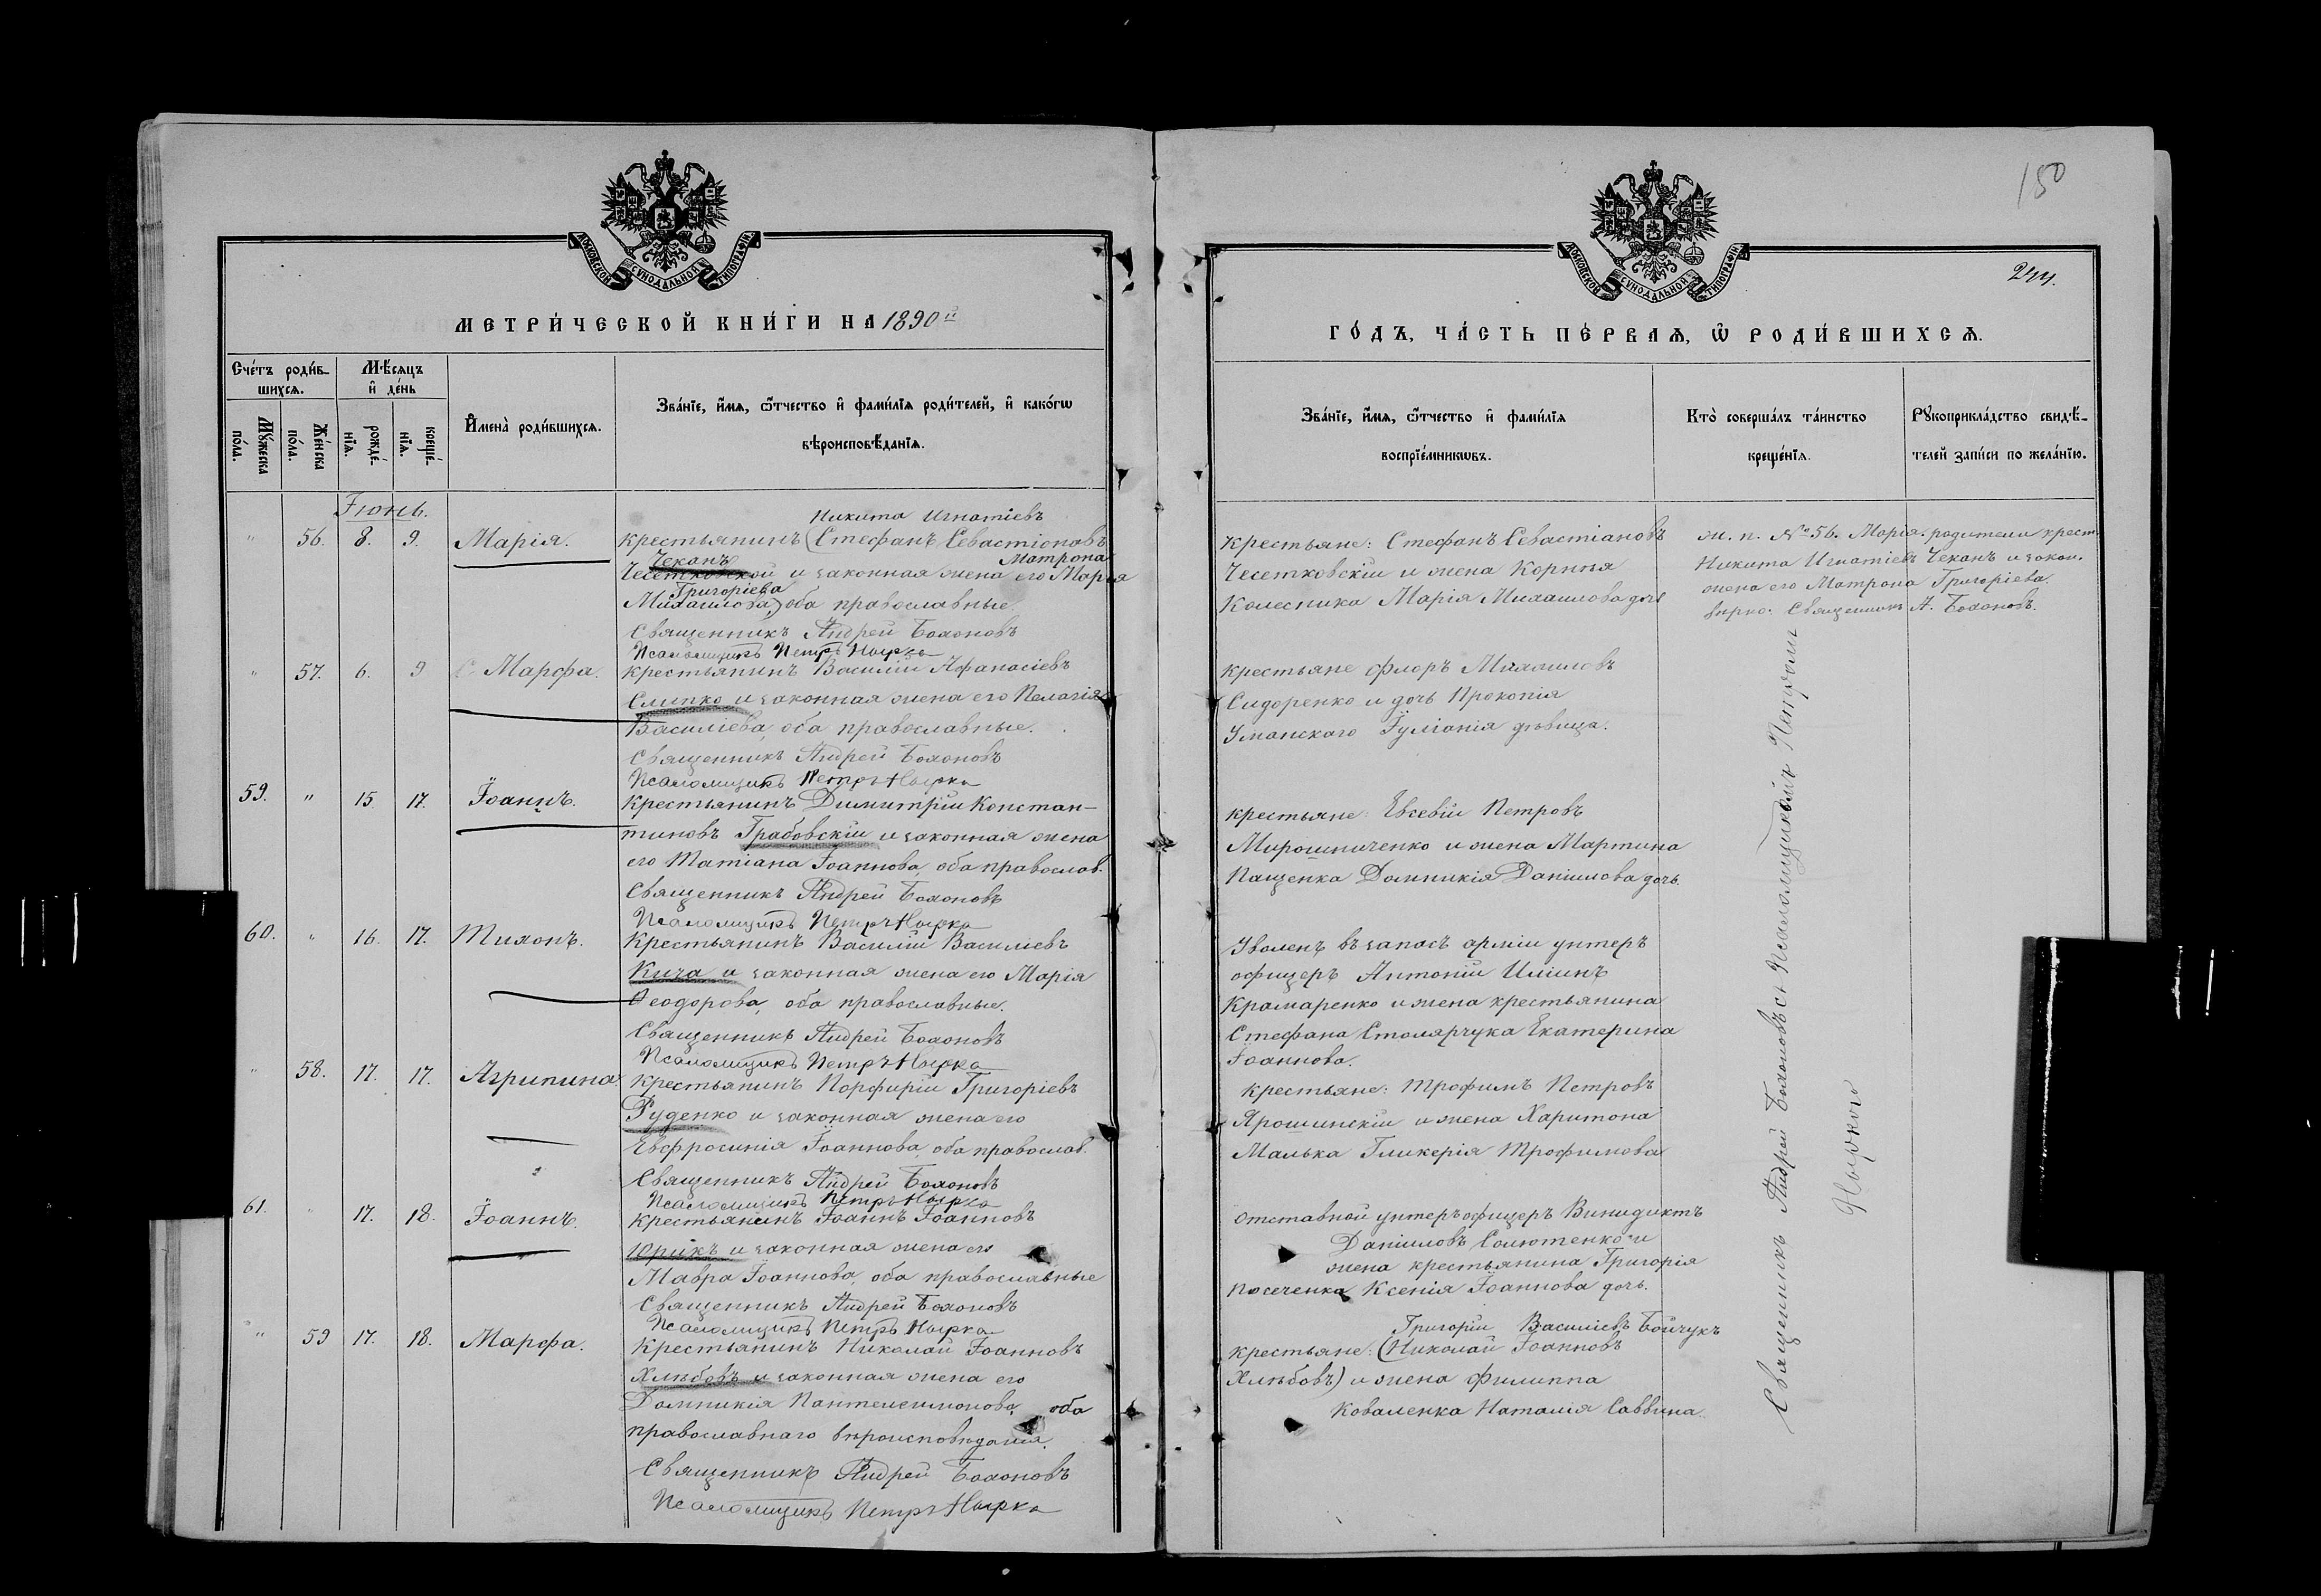 150
МОСКОВСКОЙ СѴНОДАЛЬНОЙ ТИПОГРАФІИ
МЕТРИ́ЧЕСКОЙ КНИ́ГИ НА 1890й
Сче́тъ роди́в-
шихсѧ.
Мѣ́сѧцъ
и҆ де́нь
Мꙋ́жеска
по́ла.
Же́нска
по́ла.
рожде́-
нїѧ.
креще́-
нїѧ.
И҆мена̀ роди́вшихсѧ.
Зва́нїе, и҆́мѧ, ѻ҆́тчество и҆ фами́лїѧ роди́телей, и҆ како́гѡ
вѣроисповѣ́данїѧ.
Іюнь.
" 56. 8. 9. Марія.
Никита Игнатіевъ
крестьянинъ (Стефанъ Севастіоновъ
Чеканъ Матрона
Чесетковской и законная жена его Марія
Григоріева
Михаилова) оба православные.
Священникъ Андрей Бохоновъ
Псаломщикъ Петръ Нырка
" 57. 6. 9 Марфа.
крестьянинъ Василій Афанасіевъ
Слипко и законная жена его Пелагія
Василіева, оба православные.
Священникъ Андрей Бохоновъ
Псаломщикъ Петръ Нырка
59. " 15. 17. Іоаннъ.
крестьянинъ Димитрій Констан-
тиновъ Грабовскій и законная жена
его Татіана Іоаннова, оба православ.
Священникъ Андрей Бохоновъ
Псаломщикъ Петръ Нырка
60. " 16. 17. Тихонъ.
Крестьянинъ Василій Василіевъ
Кича и законная жена его Марія
Ѳеодорова, оба православные.
Священникъ Андрей Бохоновъ
Псаломщикъ Петръ Нырка
" 58. 17. 17. Агрипина
крестьянинъ Порфирій Григоріевъ
Руденко и законная жена его
Евфросинія Іоаннова, оба православ.
Священникъ Андрей Бохоновъ
Псаломщикъ Петръ Нырка
61. " 17. 18. Іоаннъ.
крестьянинъ Іоаннъ Іоанновъ
Юрикъ и законная жена его
Мавра Іоаннова, оба православные
Священникъ Андрей Бохоновъ
Псаломщикъ Петръ Нырка
" 59 17. 18. Марфа.
Крестьянинъ Николай Іоанновъ
Хлѣбовъ и законная жена его
Домникія Пантелеимонова, оба
православнаго вѣроисповѣданія.
Священникъ Андрей Бохоновъ
Псаломщикъ Петръ Нырка
МОСКОВСКОЙ СѴНОДАЛЬНОЙ ТИПОГРАФІИ
244.
ГО́ДЪ, ЧА́СТЬ ПЕ́РВАѦ, Ѽ РОДИ́ВШИХСѦ.
Зва́нїе, и҆́мѧ, ѻ҆́тчество и҆ фами́лїѧ
воспрїе́мникѡвъ.
Кто̀ соверша́лъ та́инство
креще́нїѧ.
Рꙋкоприкла́дство свидѣ́-
телей за́писи по жела́нїю.
Крестьяне: Стефанъ Севастіановъ
Чесетковскій и жена Корнія
Колесника Марія Михаилова дочь
ж. п. № 56. Марія. родители крест.
Никита Игнатіевъ Чеканъ и закон.
жена его Матрона Григоріева.
вѣрно: Священникъ А. Бохоновъ.
крестьяне Флоръ Михаиловъ
Сидоренко и дочь Прокопія
Уманскаго Іуліанія дѣвица.
крестьяне: Евсевій Петровъ
Мирошниченко и жена Мартина
Пащенка Домникія Даніилова дочь.
Уволенъ въ запасъ арміи унтеръ
офицеръ Антоній Иліинъ
Крамаренко и жена крестьянина
Стефана Столярчука Екатерина
Іоаннова.
крестьяне: Трофимъ Петровъ
Ярошинскій и жена Харитона
Малька Гликерія Трофимова
отставной унтеръ офицеръ Винидиктъ
Даніиловъ Солютенко и
жена крестьянина Григорія
Посеченка Ксенія Іоаннова дочь.
Григорій Василіевъ Бойчукъ
крестьяне: (Николай Іоанновъ
Хлѣбовъ) и жена Филиппа
Коваленка Наталія Саввина.
Священникъ Андрей Бохоновъ съ Псаломщикомъ Петромъ
Ныркою